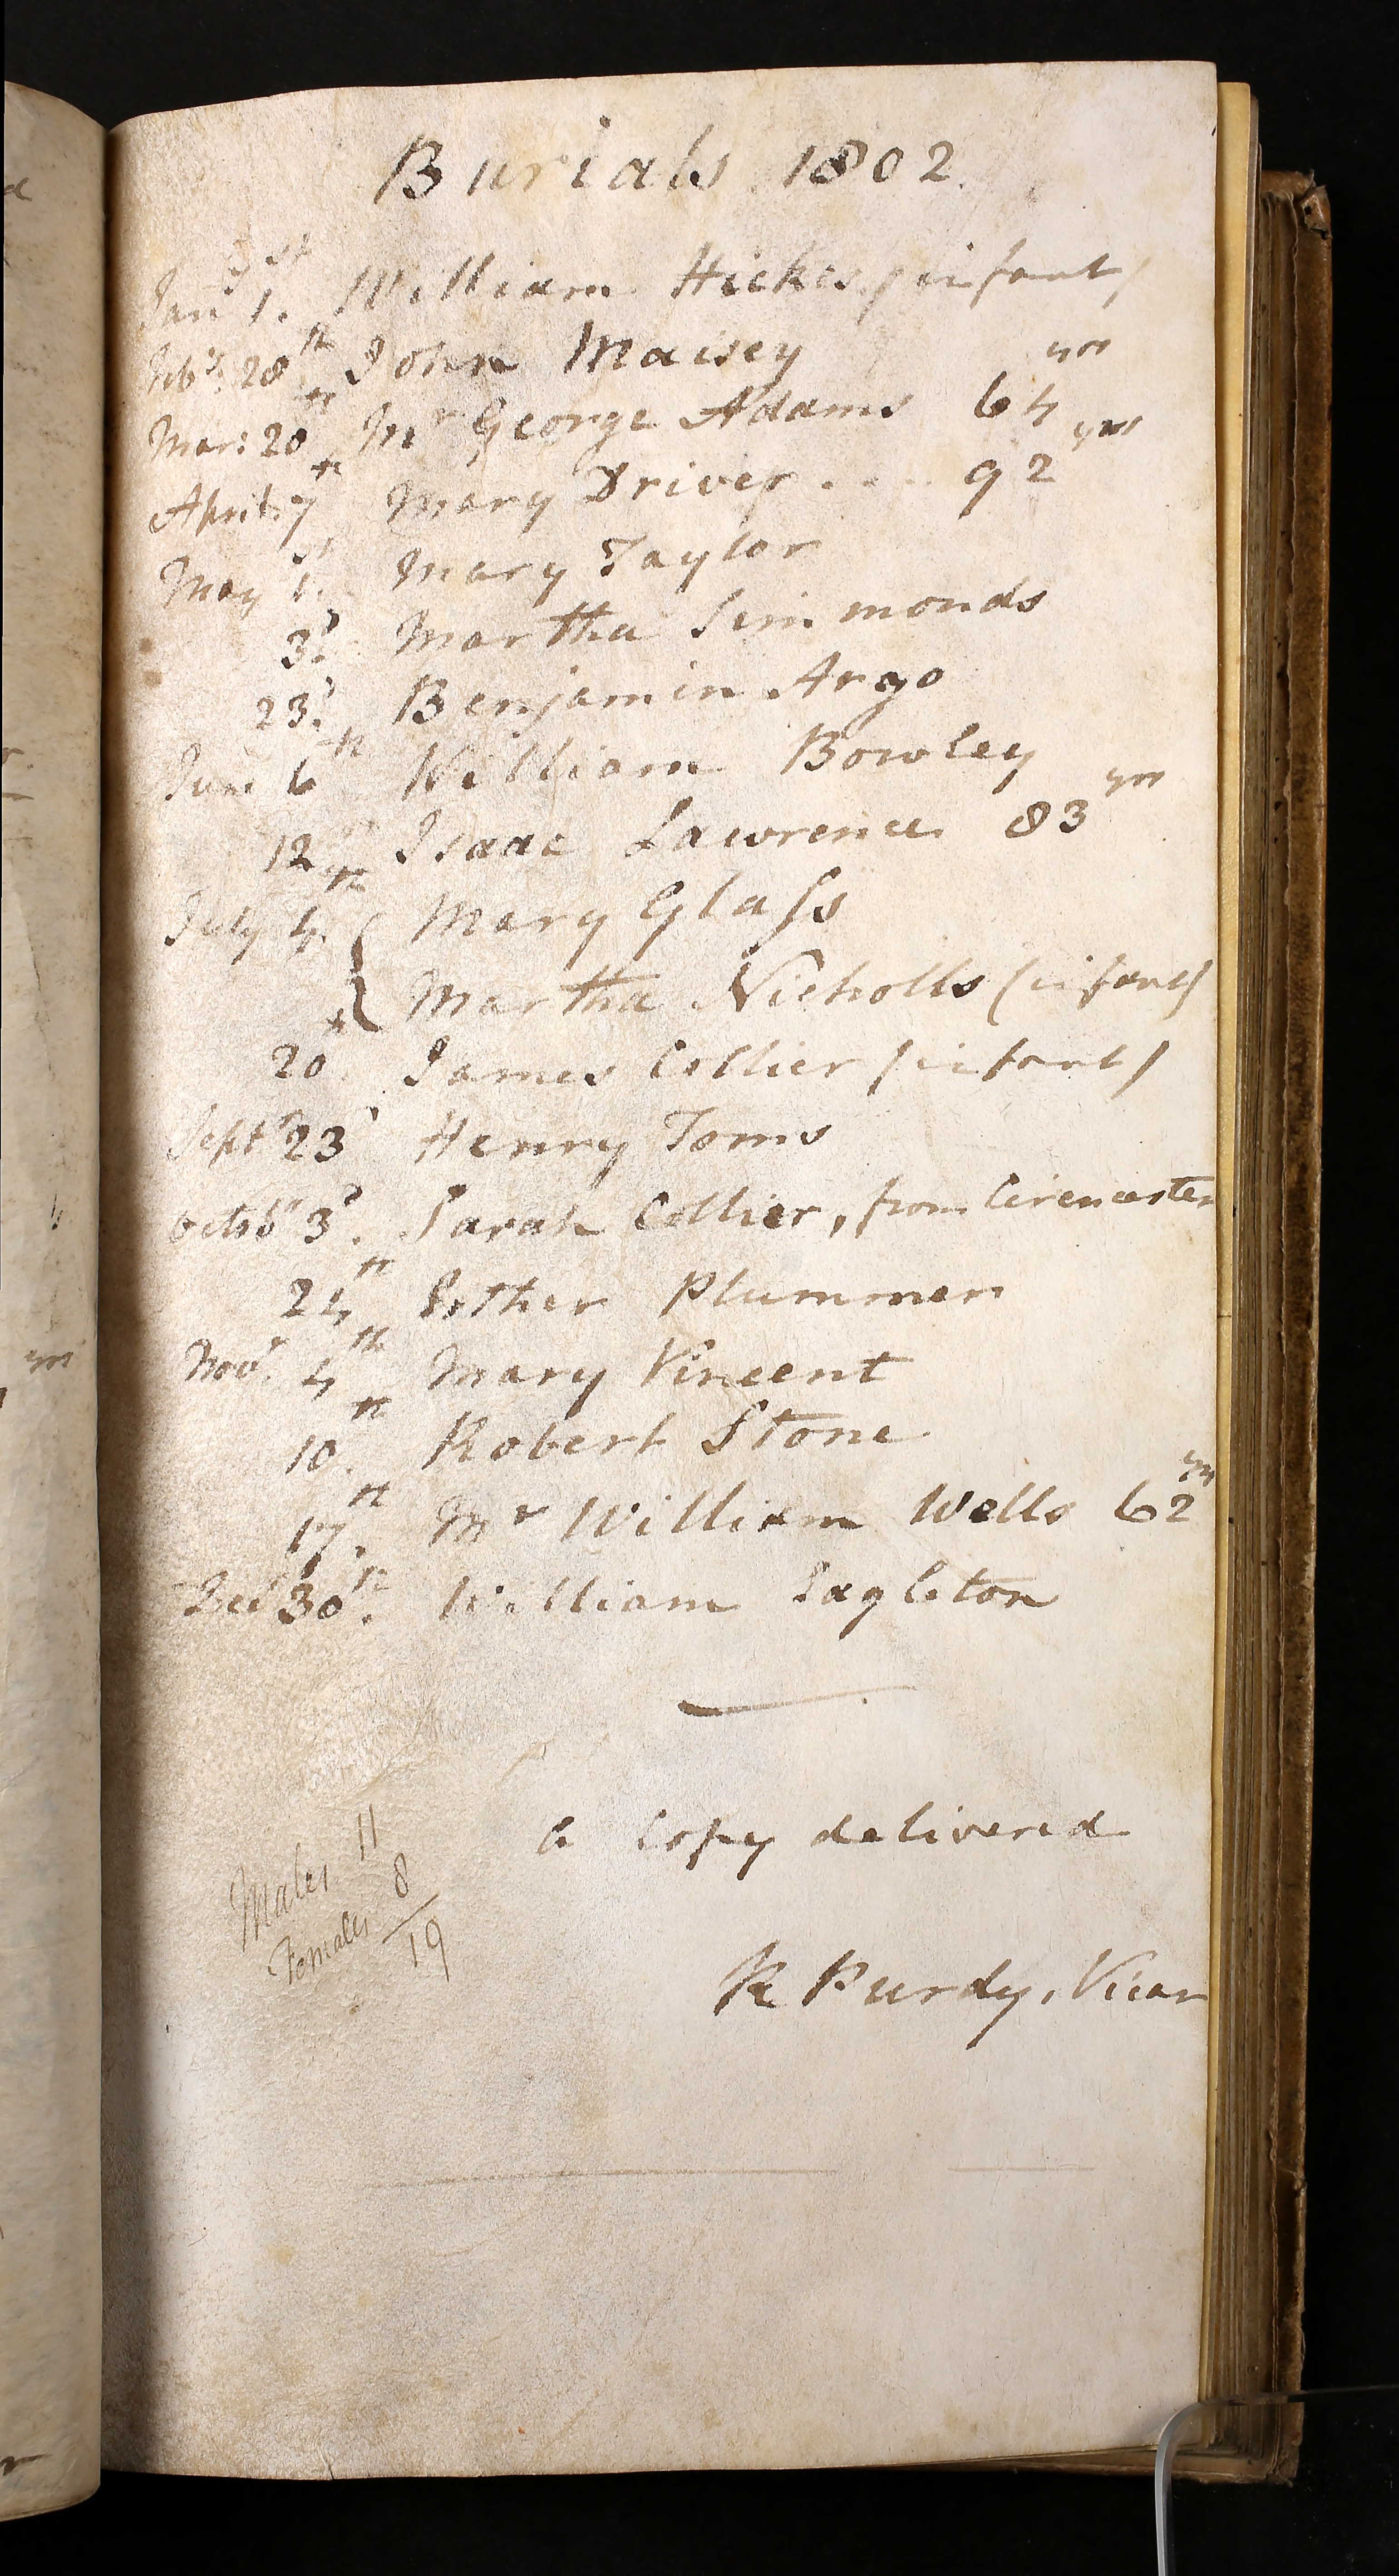 Burials 1802.
Jany 1st. William Hickes (infant)
Feby. 28th John Maisey
Mar: 20th Mr George Adams 64 yrs
April 7th Mary Driver .... 92 yrs
May 1st. Mary Taylor
3d. Martha Simmonds
23d. Benjamin Argo
June 6th William Bowley
12th Isaac Lawrence 83 yrs
July 4th. { Mary Glaſs
{ Martha Nicholls (infant)
20th James Collier (infant)
Septr 23d Henry Toms
Octobr 3d. Sarah Collier, from Cirencester
24th Esther Plummer
Novr. 4th Mary Vincent
10th. Robert Stone
17th. Mr William Wells 62 yrs
Decr 30th. William Eagleton
a Copy delivered
Males 11
Females 8
19
R Purdy, Vicar